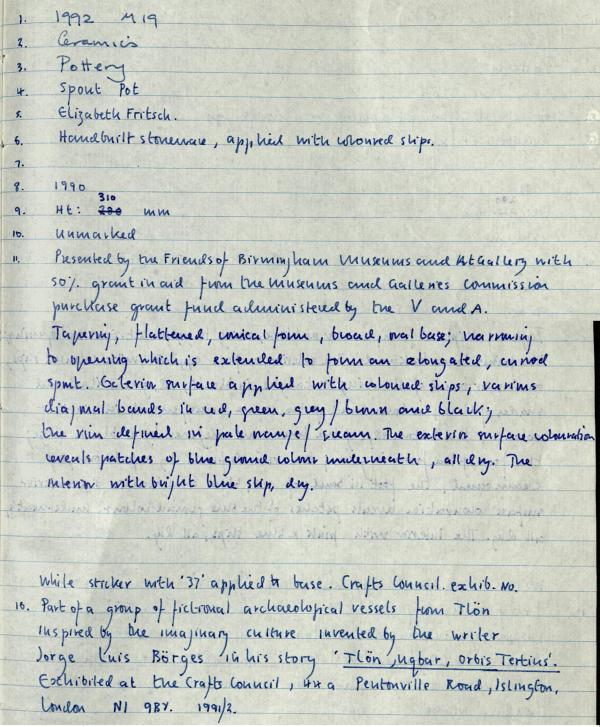 1. 1992 M19
2. Ceramics
3. Pottery
4. Spout Pot
5. Elizabeth Fritsch.
6. Handbuilt stoneware, applied with coloured slips.
7.
8. 1990
310
9. Ht: 280 mm
10. Unmarked
11. Presented by the Friends of Birmingham Museums and Art Gallery with
50% grant in aid from the Museums and Galleries Commission
purchase grant fund administered by the V and A.
Tapering, flattened, conical form, broad, oval base; narrowing
to opening which is extended to form an elongated, curved
spout. Exterior surface applied with coloured slips, various
diagonal bands in red, green, grey/brown and black;
the rim defined in pale orange/cream. The exterior surface colouration
reveals patches of blue ground colour underneath, all dry. The
interior with bright blue slip, dry.
White sticker with '37' applied to base. Crafts Council. exhib. No.
16. Part of a group of fictional archaeological vessels from Tlön
inspired by the imaginary culture invented by the writer
Jorge Luis Börges in his story 'Tlön, uqbar, Orbis Tertius'.
Exhibited at the Crafts Council, 44a Pentonville Road, Islington,
London N1 9BY. 1991/2.